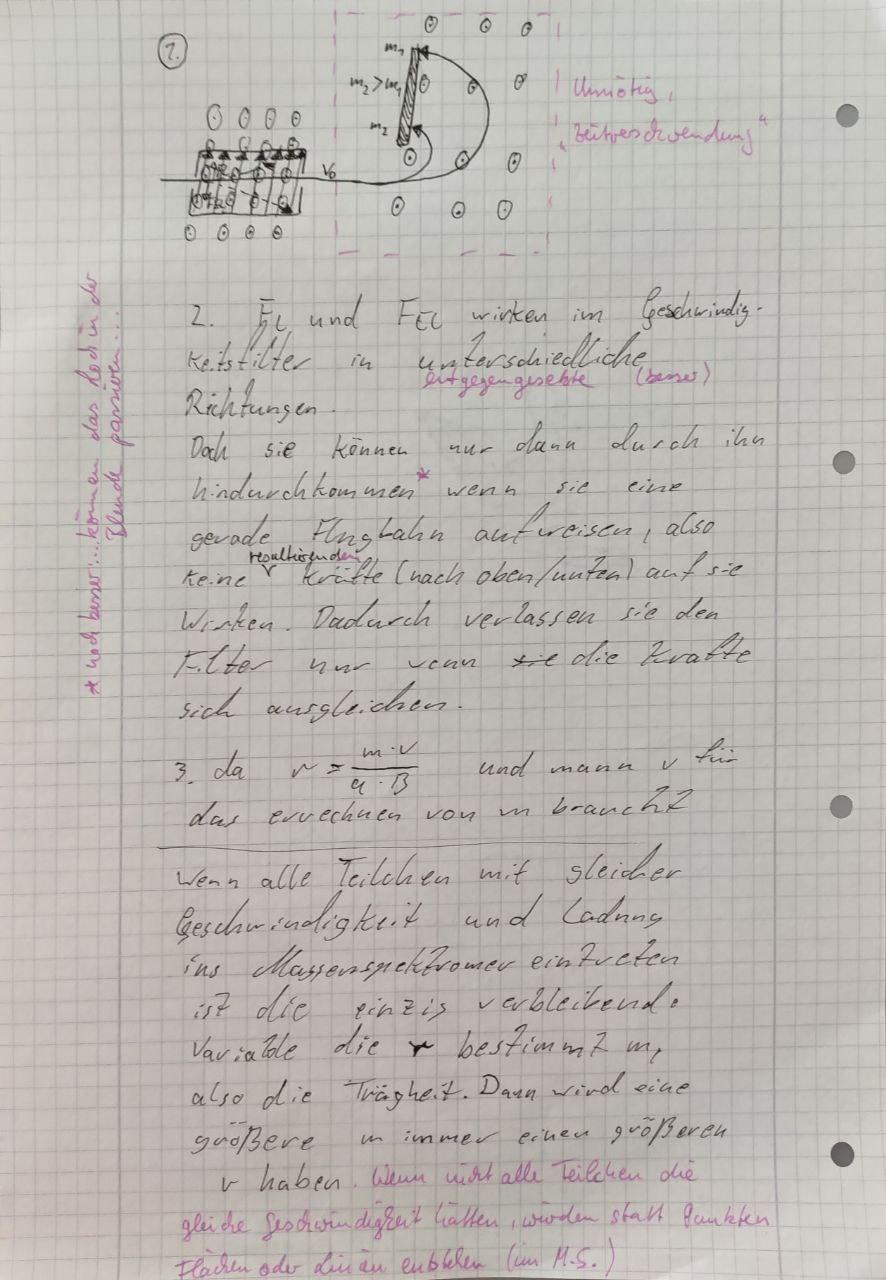 1.
m₁
m₂>m₁
m₂
v₀
Unnötig,
"Zeitverschwendung"
2. F_L und F_El wirken im Geschwindig-
keitsfilter in unterschiedliche
entgegengesetzte (besser)
Richtungen.
Doch sie können nur dann durch ihn
hindurchkommen* wenn sie eine
gerade Flugbahn aufweisen, also
keine resultierenden Kräfte (nach oben/unten) auf sie
Wirken. Dadurch verlassen sie den
Filter nur wenn sie die Kräfte
sich ausgleichen.
* noch besser: ...können das Loch in der
Blende passieren...
3. da r = m·v / q·B und mann v für
das errechnen von m braucht
Wenn alle Teilchen mit gleicher
Geschwindigkeit und Ladung
ins Massenspektromer eintreten
ist die einzig verbleibende
Variable die r bestimmt m,
also die Trägheit. Dann wird eine
größere m immer einen größeren
r haben. Wenn nicht alle Teilchen die
gleiche Geschwindigkeit hätten, würden statt Punkten
Flächen oder Linien entstehen (im M.S.)